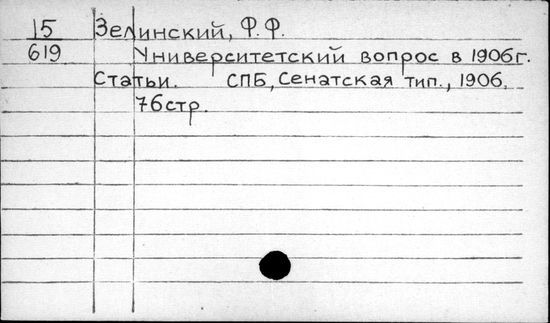 15 Зелинский, Ф.Ф.
619 Университетский вопрос в 1906г.
Статьи. СПБ, Сенатская тип., 1906,
76стр.